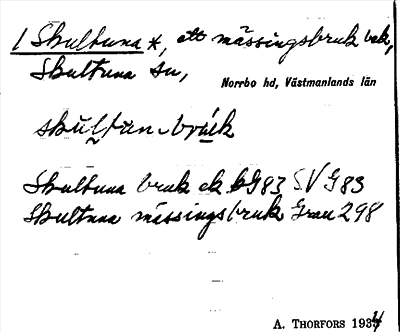 1 Skultuna *, ett mässingsbruk
Skultuna sn,
Norrbo hd, Västmanlands län
skultun bruk
Skultuna bruk ek bG83 SV G83
Skultuna mässingsbruk Grau 298
A. THORFORS 1934